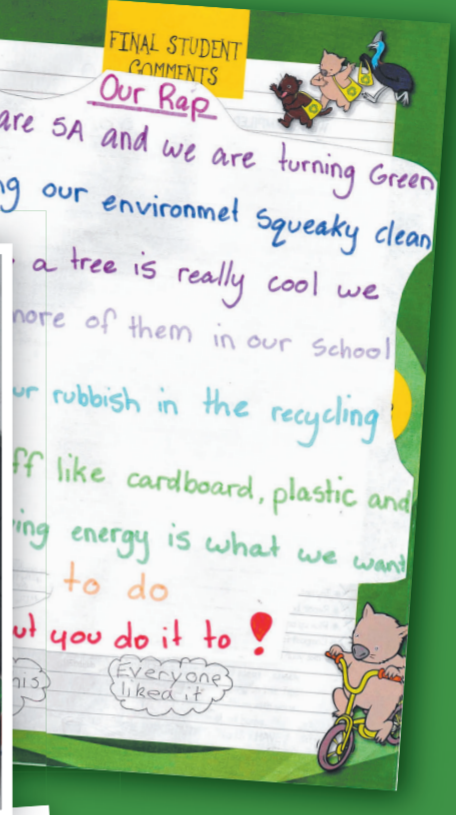 FINAL STUDENT
COMMENTS
Our Rap
are 5A and we are turning Green
our environmet Squeaky clean
a tree is really cool we
more of them in our School
rubbish in the recycling
like cardboard, plastic and
energy is what we want
to do
you do it to!
Everyone
liked it